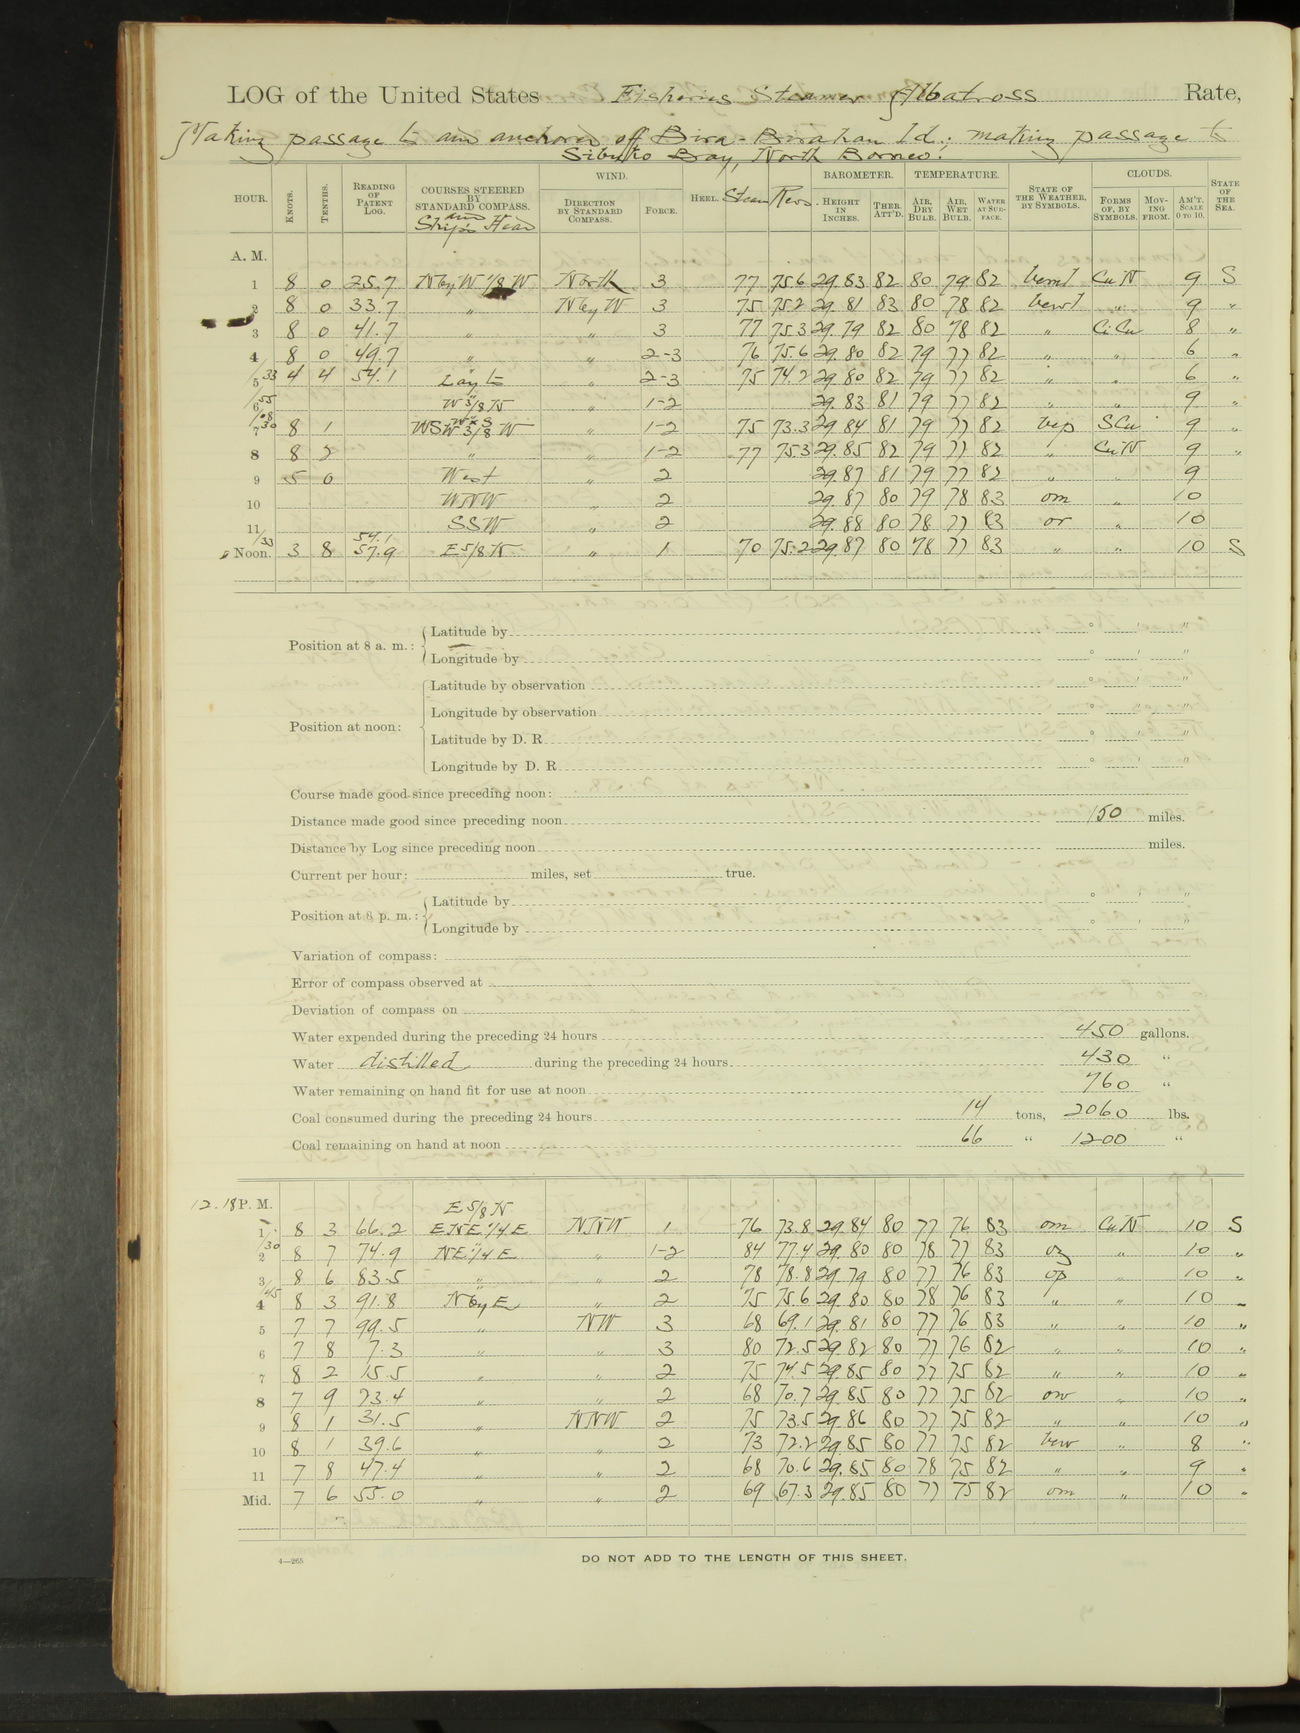 LOG of the United States Fisheries Steamer Albatross Rate,
Making passage to and anchored off Bira-Birahan Id.; making passage to
Sibuko Bay, North Borneo.
HOUR. KNOTS. TENTHS. READING OF PATENT LOG. COURSES STEERED BY STANDARD COMPASS. and Ship's Head WIND. DIRECTION BY STANDARD COMPASS. FORCE. HEEL. Steam Revs. BAROMETER. HEIGHT IN INCHES. THER. ATT'D. TEMPERATURE. AIR, DRY BULB. AIR, WET BULB. WATER AT SURFACE. STATE OF THE WEATHER, BY SYMBOLS. CLOUDS. FORMS OF, BY SYMBOLS. MOVING FROM. AM'T. SCALE 0 TO 10. STATE OF THE SEA.
A. M.
1 8 0 25.7 N by W 1/8 W North 3 77 75.6 29.83 82 80 79 82 Cu N 9 S
2 8 0 33.7 " N by W 3 75 75.2 29.81 83 80 78 82 " 9 "
3 8 0 41.7 " " 3 77 75.3 29.79 82 80 78 82 " Ci Cu 8 "
4 8 0 49.7 " " 2-3 76 75.6 29.80 82 79 77 82 " " 6 "
/33 5 4 4 54.1 Lay to " 2-3 75 74.2 29.80 82 79 77 82 " " 6 "
/55 6 W 3/8 N " 1-2 29.83 81 79 77 82 " " 9 "
7 /30 8 1 WSW 3/8 W " 1-2 75 73.3 29.84 81 79 77 82 bcp S Cu 9 "
8 8 2 " " 1-2 77 75.3 29.85 82 79 77 82 " Cu N 9 "
9 5 0 West " 2 29.87 81 79 77 82 " " 9
10 WNW " 2 29.87 80 79 78 83 om " 10
11 SSW " 2 29.88 80 78 77 83 or " 10
/33 54.1
Noon. 3 8 57.9 E 5/8 N " 1 70 75.2 29.87 80 78 77 83 " " 10 S
Position at 8 a. m.: Latitude by ° ' "
Longitude by ° ' "
Position at noon: Latitude by observation ° ' "
Longitude by observation ° ' "
Latitude by D. R. ° ' "
Longitude by D. R. ° ' "
Course made good since preceding noon:
Distance made good since preceding noon 150 miles.
Distance by Log since preceding noon miles.
Current per hour: miles, set true.
Position at 8 p. m.: Latitude by ° ' "
Longitude by ° ' "
Variation of compass:
Error of compass observed at
Deviation of compass on
Water expended during the preceding 24 hours 450 gallons.
Water distilled during the preceding 24 hours 430 "
Water remaining on hand fit for use at noon 760 "
Coal consumed during the preceding 24 hours 14 tons, 2060 lbs.
Coal remaining on hand at noon 66 " 1200 "
12.18 P. M. E 5/8 N
1 8 3 66.2 ENE 1/4 E NNW 1 76 73.8 29.84 80 77 76 83 om Cu N 10 S
/30 2 8 7 74.9 NE 1/4 E " 1-2 84 77.4 29.80 80 78 77 83 " 10 "
3 8 6 83.5 " " 2 78 78.8 29.79 80 77 76 83 op " 10 "
/45 4 8 3 91.8 N by E " 2 75 75.6 29.80 80 78 76 83 " " 10 "
5 7 7 99.5 " NW 3 68 69.1 29.81 80 77 76 83 " " 10 "
6 7 8 7.3 " " 3 80 72.5 29.82 80 77 76 82 " " 10 "
7 8 2 15.5 " " 2 75 74.5 29.85 80 77 75 82 " " 10 "
8 7 9 23.4 " " 2 68 70.7 29.85 80 77 75 82 ow " 10 "
9 8 1 31.5 " NNW 2 75 73.5 29.86 80 77 75 82 " " 10 "
10 8 1 39.6 " " 2 73 72.2 29.85 80 77 75 82 bcw " 8 "
11 7 8 47.4 " " 2 68 70.6 29.85 80 78 75 82 " " 9 "
Mid. 7 6 55.0 " " 2 69 67.3 29.85 80 77 75 82 om " 10 "
4—265
DO NOT ADD TO THE LENGTH OF THIS SHEET.